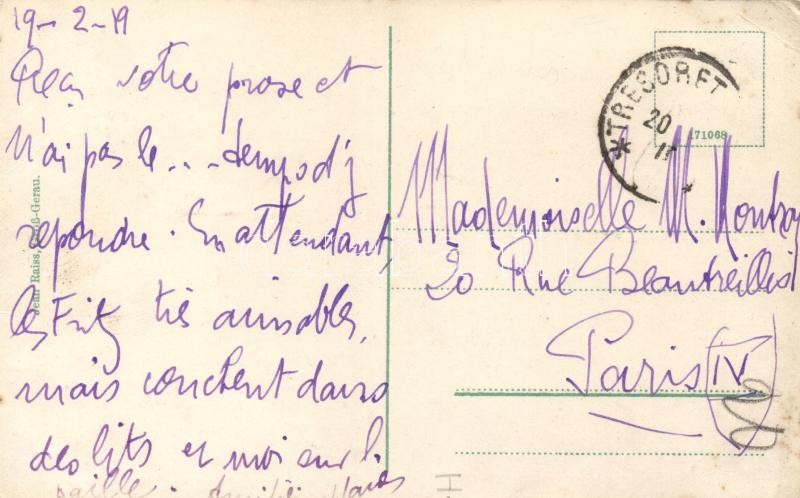 19-2-19
Reçu votre prose et
n'ai pas le... temps d'y
repondre. En attendant,
les Fritz très aimables,
mais couchent dans
des lits et moi sur l.
paille. Amitiés
Jean Raiss, Groß-Gerau.
TRESOR ET
20
11
171068
Mademoiselle M.
20 Rue Beautreillis
Paris IV